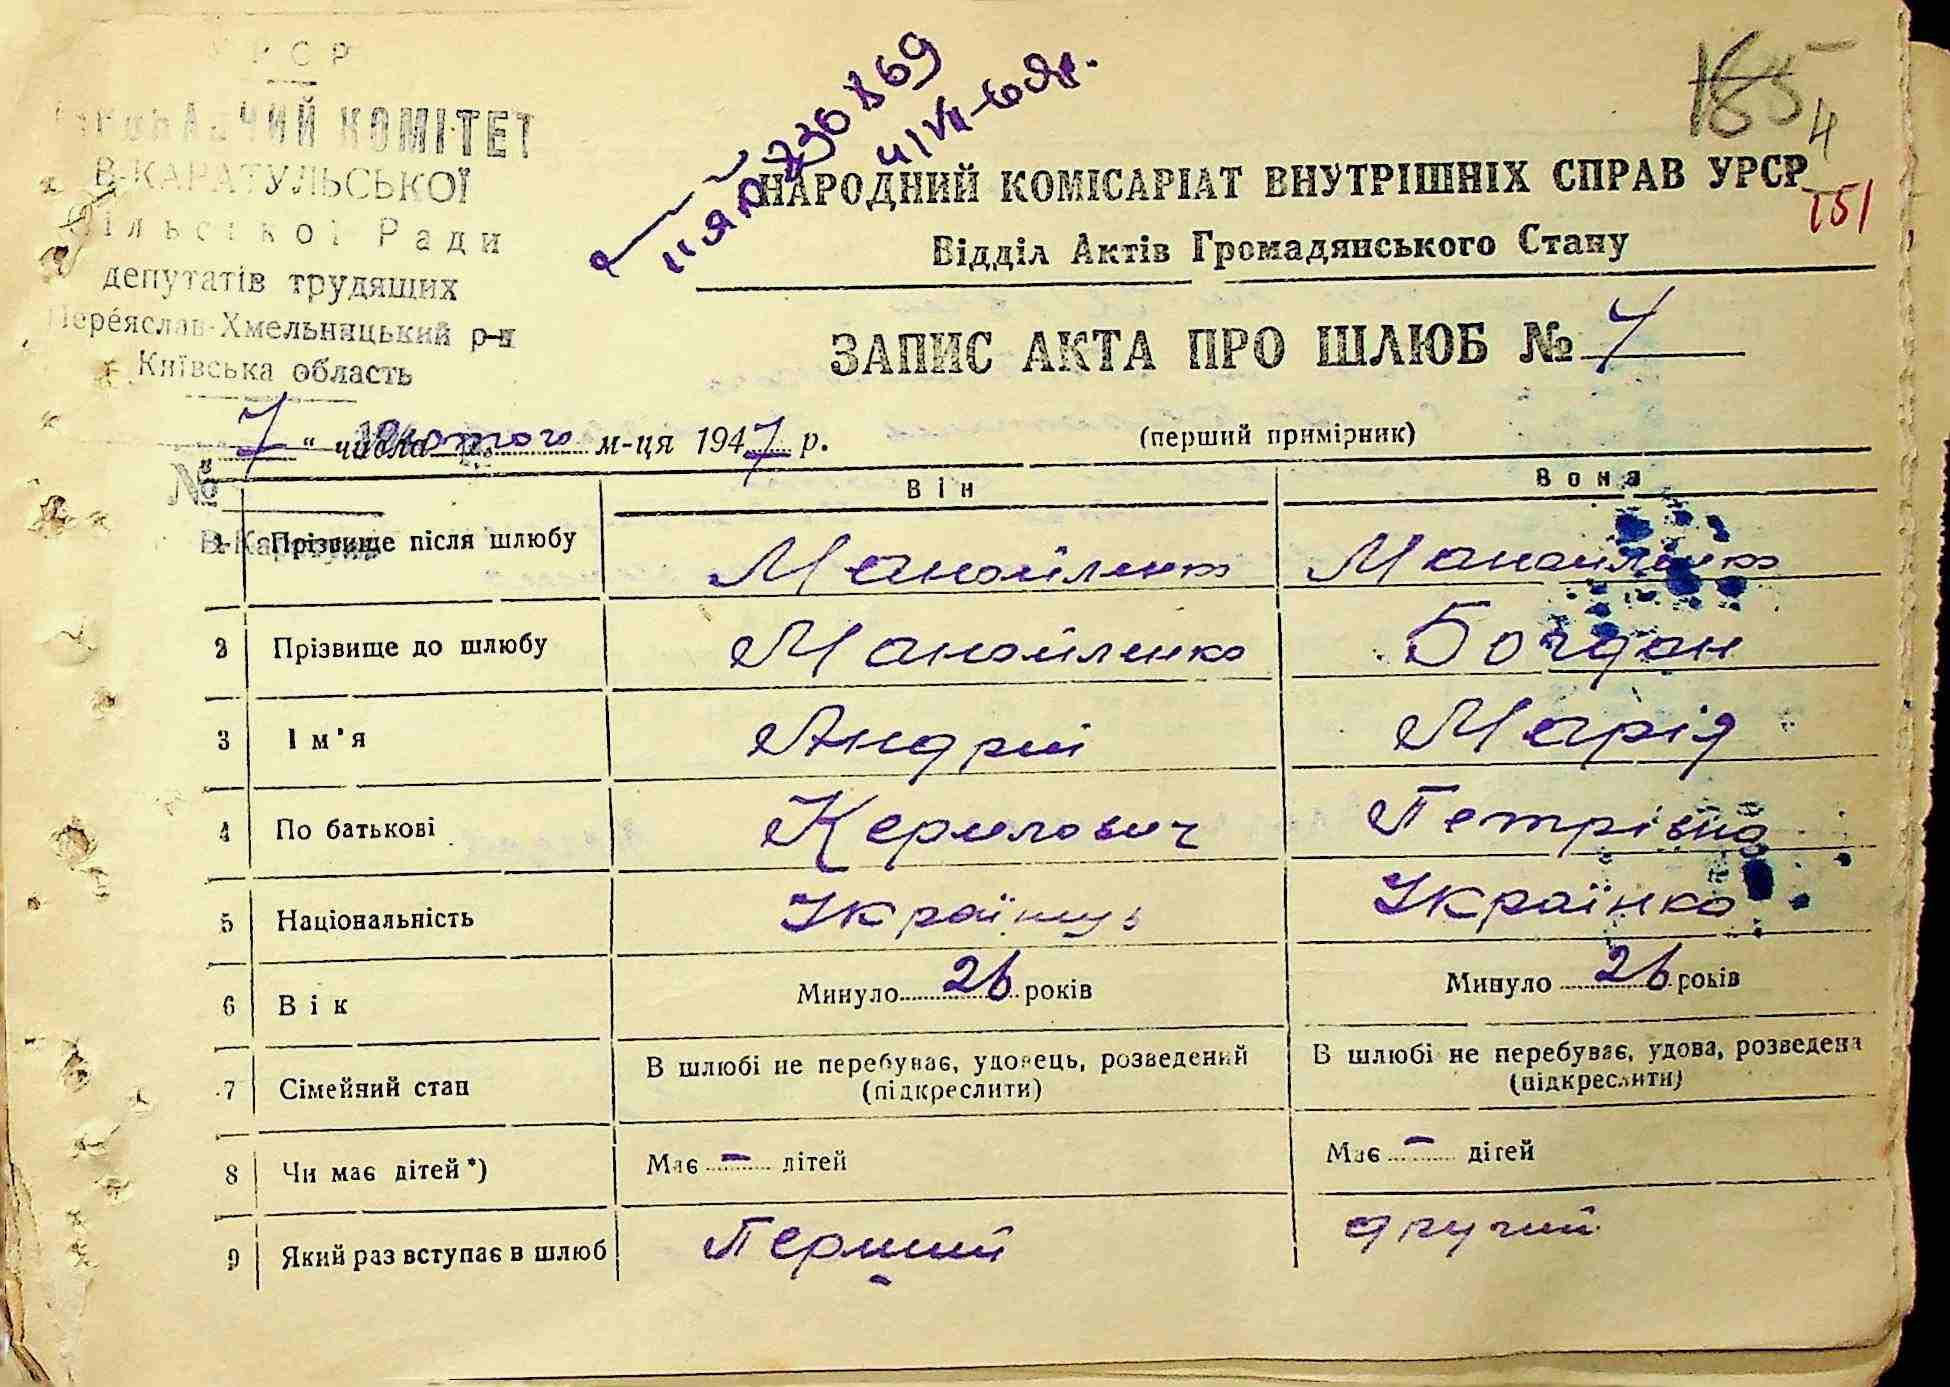 УРСР
Виконавчий КОМІТЕТ
В-КАРАТУЛЬСЬКОЇ
Сільської Ради
депутатів трудящих
Переяслав-Хмельницький р-н
Київська область
№
В-Каратуль
ІІ ЯЯ 236869
4/VІІ-69р.
185
4
151
НАРОДНИЙ КОМІСАРІАТ ВНУТРІШНІХ СПРАВ УРСР
Відділ Актів Громадянського Стану
ЗАПИС АКТА ПРО ШЛЮБ № 7
"7" числа лютого м-ця 1947 р. (перший примірник)
Він Вона
1 Прізвище після шлюбу Манойленко Манойленко
2 Прізвище до шлюбу Манойленко Богдан
3 Ім'я Андрій Марія
4 По батькові Керилович Петрівна
5 Національність Українць Українка
6 Вік Минуло 26 років Минуло 26 років
7 Сімейний стан В шлюбі не перебуває, удовець, розведений (підкреслити) В шлюбі не перебуває, удова, розведена (підкреслити)
8 Чи має дітей*) Має - дітей Має - дітей
9 Який раз вступає в шлюб Перший другий